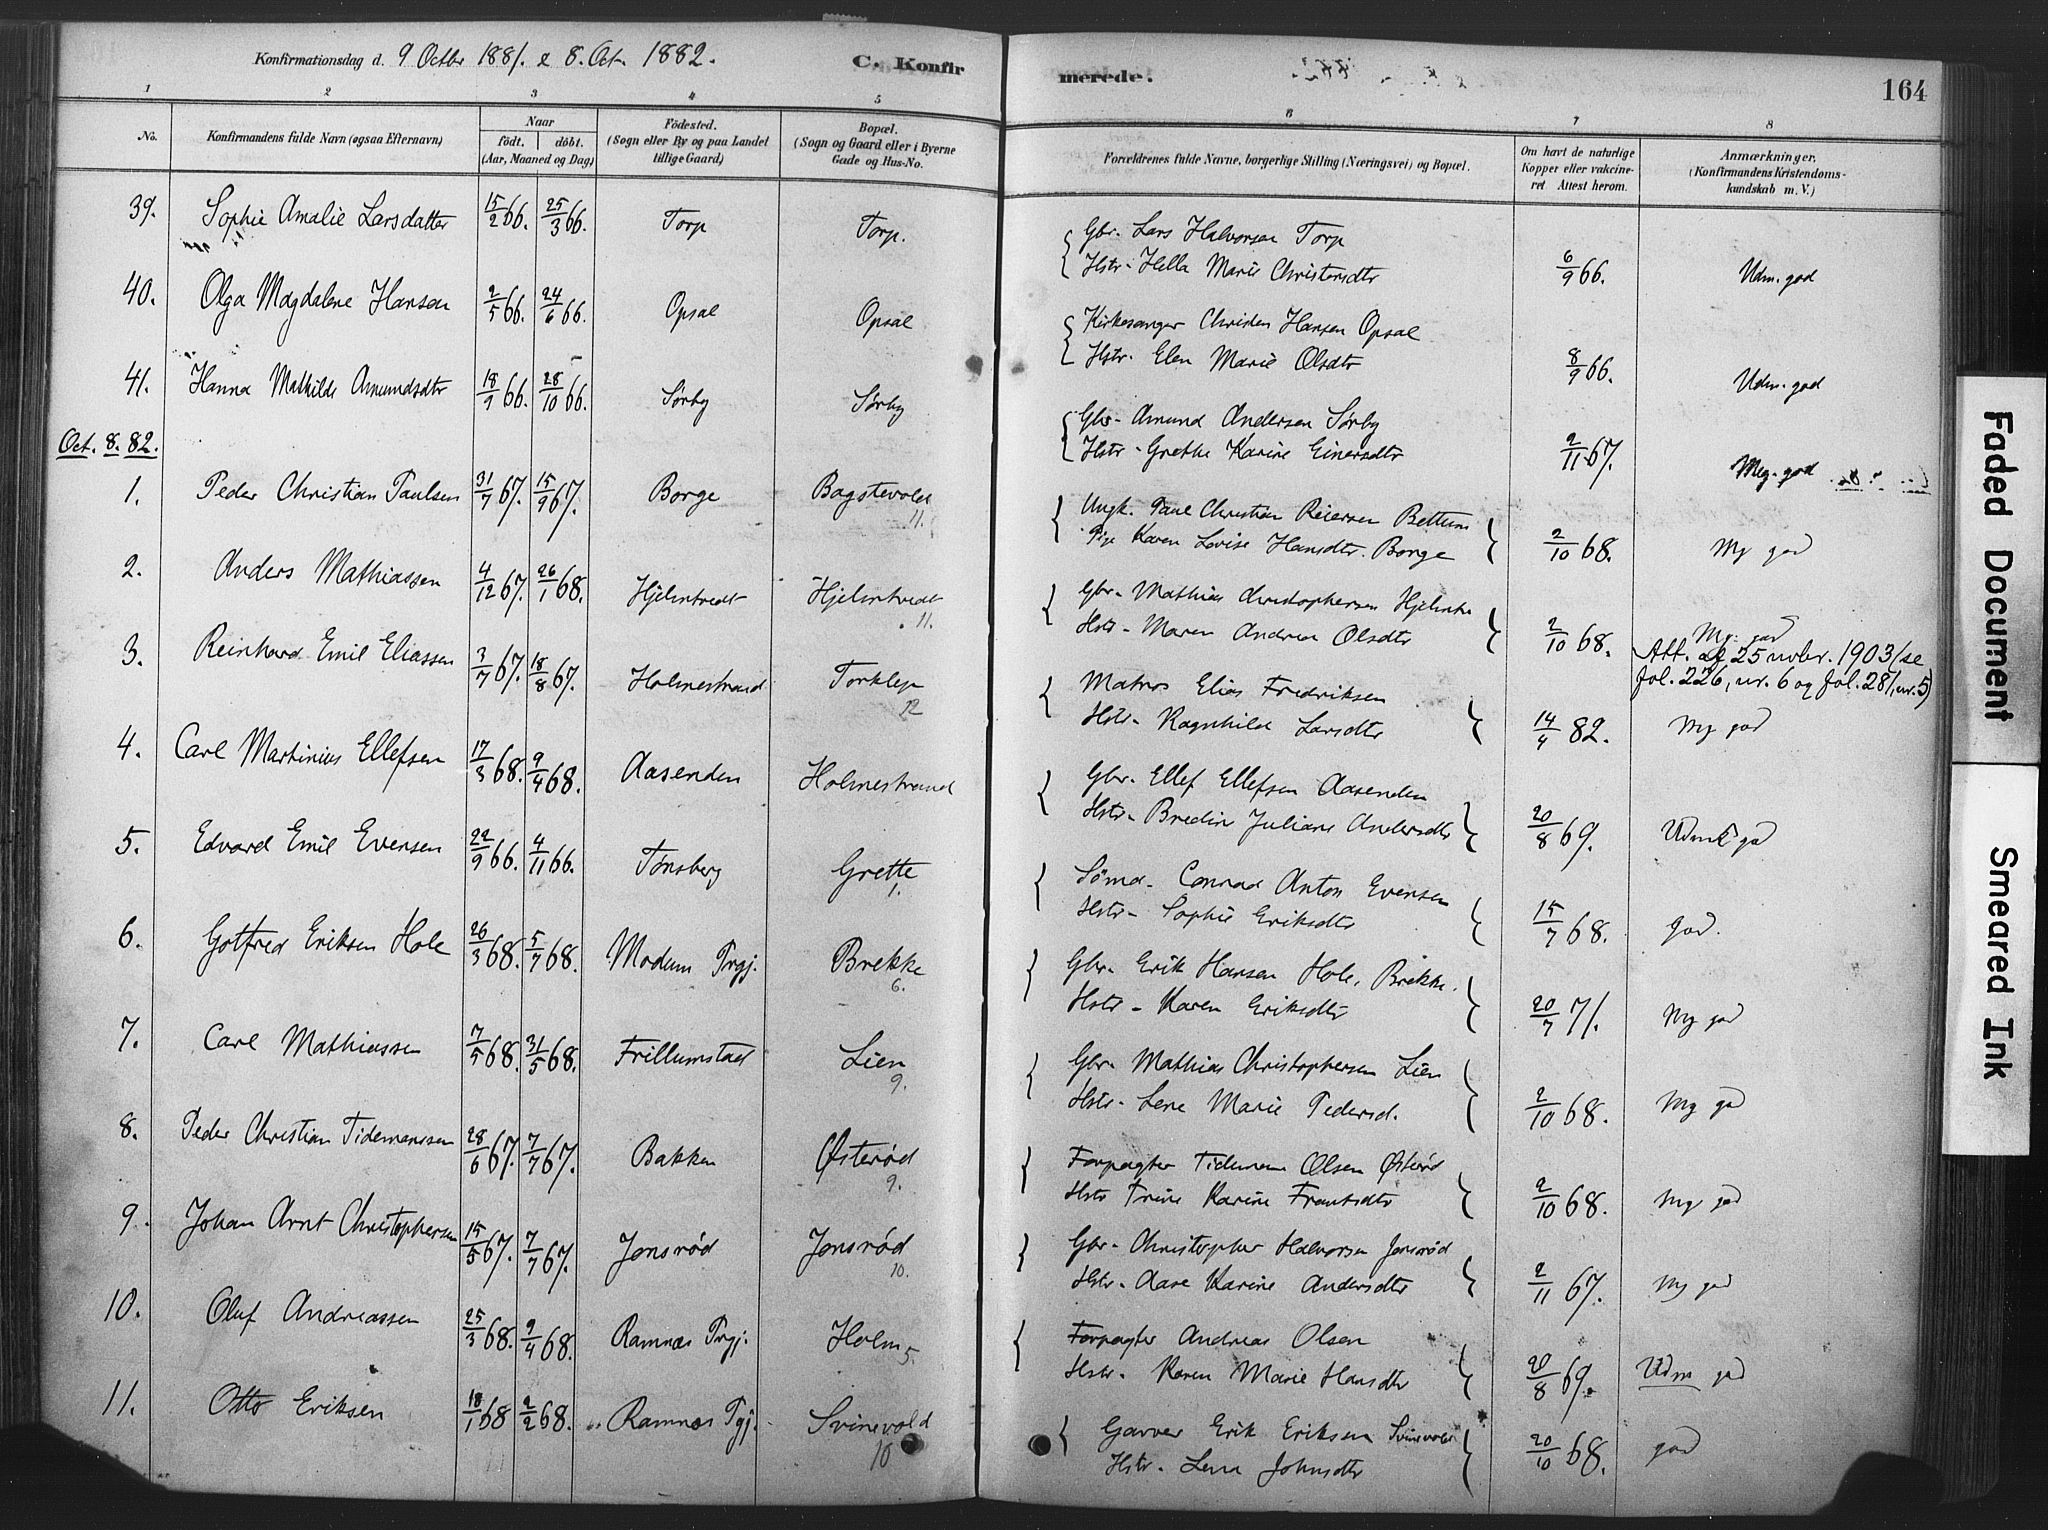 Konfirmationsdag d. 9 Octbr 1881. & 8. Oct. 1882. C. Konfirmerede. 164
1 2 3 4 5 6 7 8
No. Konfirmandens fulde Navn (ogsaa Efternavn) Naar født. døbt. (Aar, Maaned og Dag) Fødested. (Sogn eller By og paa Landet tillige Gaard) Bopæl. (Sogn og Gaard eller i Byerne Gade og Hus-No. Forældrenes fulde Navne, borgerlige Stilling (Næringsvei) og Bopæl. Om havt de naturlige Kopper eller vakcineret Attest herom. Anmærkninger. (Konfirmandens Kristendomskundskab m. V.)
39. Sophie Amalie Larsdatter 15/2 66. 25/3 66. Torp Torp. Gbr. Lars Halvorsen Torp
Hstr. Hella Marie Christensdtr 6/9 66. Udm. god
40. Olga Magdalene Hansen 2/5 66. 24/6 66. Opsal Opsal Kirkesanger Christen Hansen Opsal
Hstr. Elen Marie Olsdtr 8/9 66. Udm. god
41. Hanna Mathilde Amundsdtr 18/9 66. 28/10 66. Sørby Sørby Gbr. Amund Andersen Sørby
Hstr. Grethe Karine Einersdtr 2/11 67. Meg. god
Oct. 8. 82.
1. Peder Christian Paulsen 31/7 67. 15/9 67. Borge Bagstevold 11. Ungk. Paul Christian Reiersen Bettum
Pige Karen Lovise Hansdtr. Borge 2/10 68. My god
2. Anders Mathiassen 4/12 67. 26/1 68. Hjelmtvedt Hjelmtvedt 11. Gbr. Mathias Christophersen Hjelmtv
Hstr. Maren Andrea Olsdtr 2/10 68. My. god
Att. af 25 novbr. 1903 (se
fol. 226, nr. 6 og fol. 281, nr. 5)
3. Reinhard Emil Eliassen 3/7 67. 18/8 67. Holmestrand Torklep 12 Matros Elias Fredriksen
Hstr. Ragnhild Larsdtr 14/4 82. My god
4. Carl Martinius Ellefsen 17/3 68. 9/4 68. Aasenden Holmestrand Gbr. Ellef Ellefsen Aasenden
Hstr. Bredine Juliane Andersdtr 20/8 69. Udmk god
5. Edvard Emil Evensen 22/9 66. 4/11 66. Tønsberg Grette 1. Sømd. Conrad Anton Evensen
Hstr. Sophie Eriksdtr 15/7 68. god.
6. Gotfred Eriksen Hole 26/3 68. 5/7 68. Modum Prgj. Brekke 6. Gbr. Erik Hansen Hole, Brekke.
Hstr. Karen Eriksdtr 20/7 71. My god
7. Carl Mathiassen 7/5 68. 31/5 68. Frillumstad Lien 9. Gbr. Mathias Christophersen Lien
Hstr. Lene Marie Pedersd. 2/10 68. My god
8. Peder Christian Tidemanssen 28/6 67. 7/7 67. Bakken Østerød 9. Forpagter Tideman Olsen Østerød
Hstr Trine Karine Frantsdtr 2/10 68. My god
9. Johan Arnt Christophersen 15/5 67. 7/7 67. Jonsrød Jonsrød 10. Gbr. Christopher Halvorsen Jonsrød
Hstr. Aase Karine Andersdtr 2/11 67. My god
10. Oluf Andreassen 25/3 68. 9/4 68. Ramnæs Prgj. Holm 5. Forpagter Andreas Olsen
Hstr. Karen Marie Hansdtr 20/8 69. Udm god
11. Otto Eriksen 18/1 68 2/2 68. Ramnæs Pgj. Svinevold 10 Garver Erik Eriksen Svinevold
Hstr. Lena Johnsdtr 20/10 68. god
Faded Document
Smeared Ink